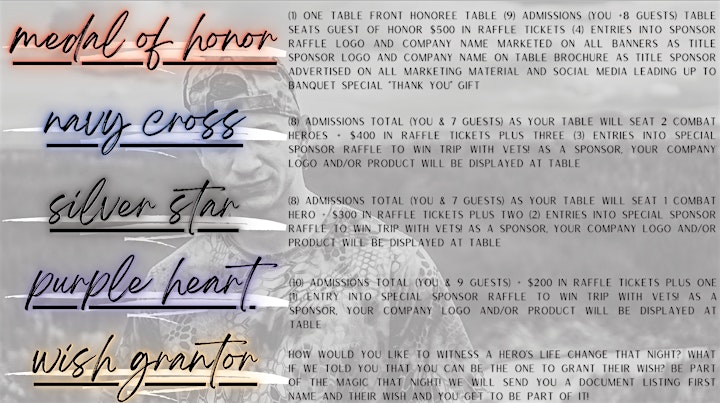 medal of honor
(1) ONE TABLE FRONT HONOREE TABLE (9) ADMISSIONS (YOU +8 GUESTS) TABLE
SEATS GUEST OF HONOR $500 IN RAFFLE TICKETS (4) ENTRIES INTO SPONSOR
RAFFLE LOGO AND COMPANY NAME MARKETED ON ALL BANNERS AS TITLE
SPONSOR LOGO AND COMPANY NAME ON TABLE BROCHURE AS TITLE SPONSOR
ADVERTISED ON ALL MARKETING MATERIAL AND SOCIAL MEDIA LEADING UP TO
BANQUET SPECIAL "THANK YOU" GIFT
navy cross
(8) ADMISSIONS TOTAL (YOU & 7 GUESTS) AS YOUR TABLE WILL SEAT 2 COMBAT
HEROES + $400 IN RAFFLE TICKETS PLUS THREE (3) ENTRIES INTO SPECIAL
SPONSOR RAFFLE TO WIN TRIP WITH VETS! AS A SPONSOR, YOUR COMPANY
LOGO AND/OR PRODUCT WILL BE DISPLAYED AT TABLE
silver star
(8) ADMISSIONS TOTAL (YOU & 7 GUESTS) AS YOUR TABLE WILL SEAT 1 COMBAT
HERO + $300 IN RAFFLE TICKETS PLUS TWO (2) ENTRIES INTO SPECIAL SPONSOR
RAFFLE TO WIN TRIP WITH VETS! AS A SPONSOR, YOUR COMPANY LOGO AND/OR
PRODUCT WILL BE DISPLAYED AT TABLE
purple heart
(10) ADMISSIONS TOTAL (YOU & 9 GUESTS) + $200 IN RAFFLE TICKETS PLUS ONE
(1) ENTRY INTO SPECIAL SPONSOR RAFFLE TO WIN TRIP WITH VETS! AS A
SPONSOR, YOUR COMPANY LOGO AND/OR PRODUCT WILL BE DISPLAYED AT
TABLE
wish grantor
HOW WOULD YOU LIKE TO WITNESS A HERO'S LIFE CHANGE THAT NIGHT? WHAT
IF WE TOLD YOU THAT YOU CAN BE THE ONE TO GRANT THEIR WISH? BE PART
OF THE MAGIC THAT NIGHT! WE WILL SEND YOU A DOCUMENT LISTING FIRST
NAME AND THEIR WISH AND YOU GET TO BE PART OF IT!